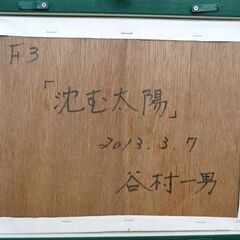 F3
「沈む太陽」
2013.3.7
谷村一男